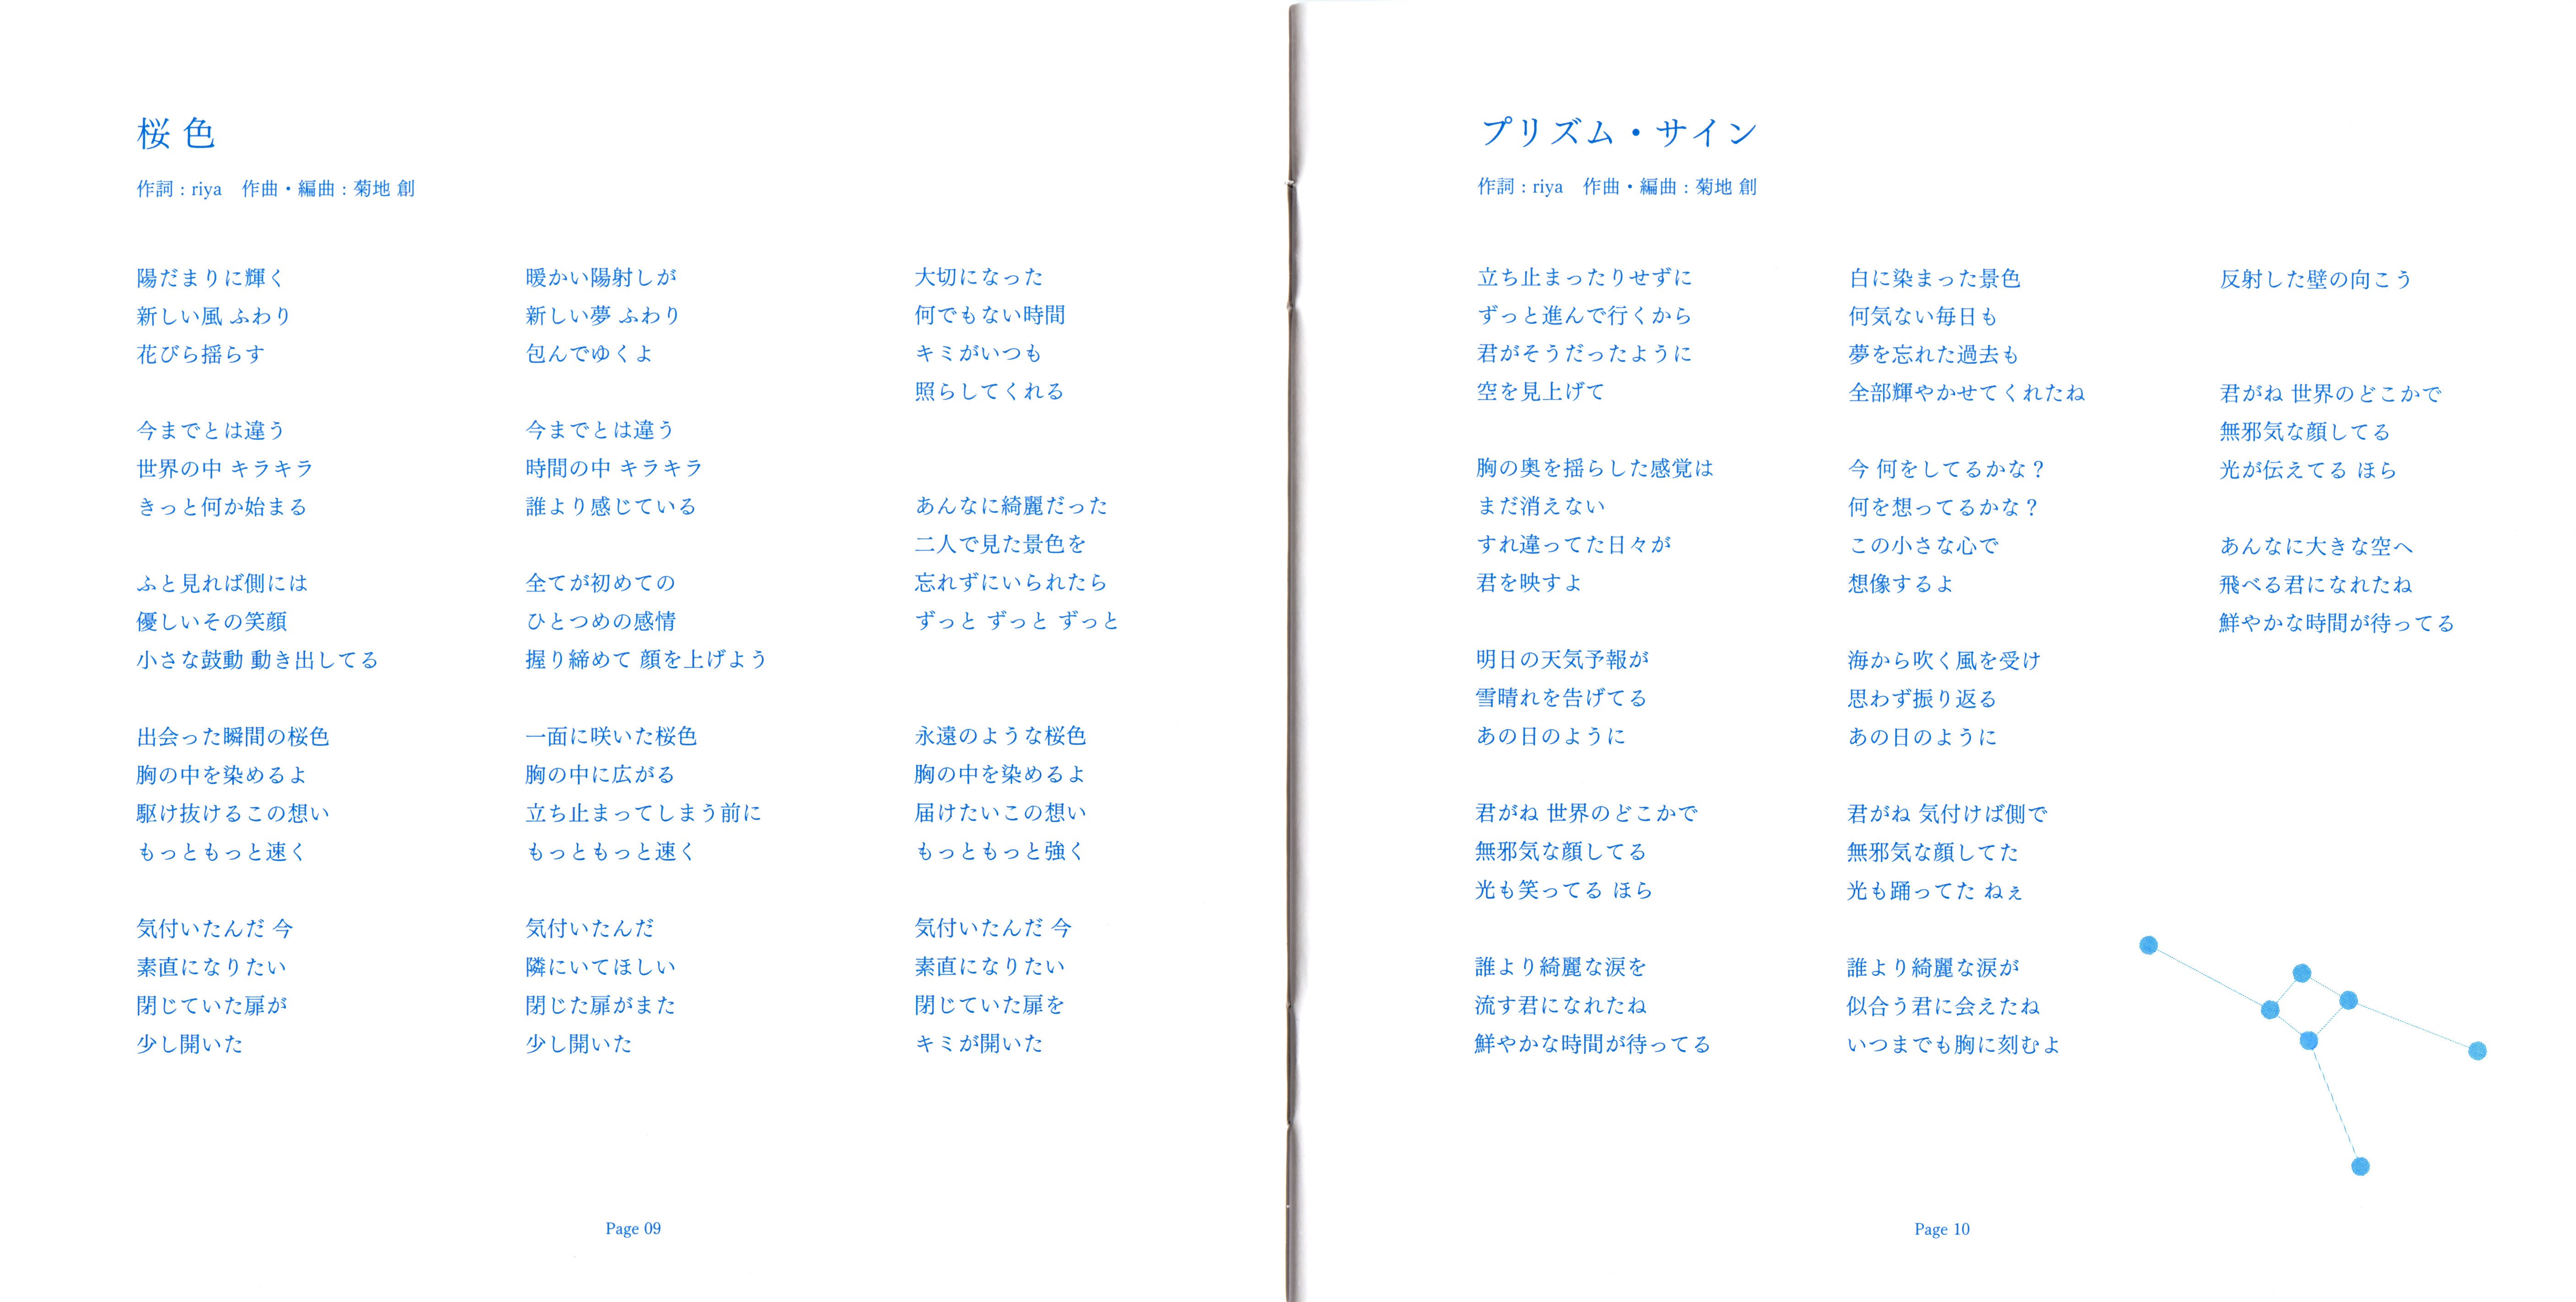 桜色
作詞：riya　作曲・編曲：菊地 創
陽だまりに輝く
新しい風 ふわり
花びら揺らす
今までとは違う
世界の中 キラキラ
きっと何か始まる
ふと見れば側には
優しいその笑顔
小さな鼓動 動き出してる
出会った瞬間の桜色
胸の中を染めるよ
駆け抜けるこの想い
もっともっと速く
気付いたんだ 今
素直になりたい
閉じていた扉が
少し開いた
暖かい陽射しが
新しい夢 ふわり
包んでゆくよ
今までとは違う
時間の中 キラキラ
誰より感じている
全てが初めての
ひとつめの感情
握り締めて 顔を上げよう
一面に咲いた桜色
胸の中に広がる
立ち止まってしまう前に
もっともっと速く
気付いたんだ
隣にいてほしい
閉じた扉がまた
少し開いた
大切になった
何でもない時間
キミがいつも
照らしてくれる
あんなに綺麗だった
二人で見た景色を
忘れずにいられたら
ずっと ずっと ずっと
永遠のような桜色
胸の中を染めるよ
届けたいこの想い
もっともっと強く
気付いたんだ 今
素直になりたい
閉じていた扉を
キミが開いた
Page 09
プリズム・サイン
作詞：riya　作曲・編曲：菊地 創
立ち止まったりせずに
ずっと進んで行くから
君がそうだったように
空を見上げて
胸の奥を揺らした感覚は
まだ消えない
すれ違ってた日々が
君を映すよ
明日の天気予報が
雪晴れを告げてる
あの日のように
君がね 世界のどこかで
無邪気な顔してる
光も笑ってる ほら
誰より綺麗な涙を
流す君になれたね
鮮やかな時間が待ってる
白に染まった景色
何気ない毎日も
夢を忘れた過去も
全部輝やかせてくれたね
今 何をしてるかな？
何を想ってるかな？
この小さな心で
想像するよ
海から吹く風を受け
思わず振り返る
あの日のように
君がね 気付けば側で
無邪気な顔してた
光も踊ってた ねぇ
誰より綺麗な涙が
似合う君に会えたね
いつまでも胸に刻むよ
反射した壁の向こう
君がね 世界のどこかで
無邪気な顔してる
光が伝えてる ほら
あんなに大きな空へ
飛べる君になれたね
鮮やかな時間が待ってる
Page 10